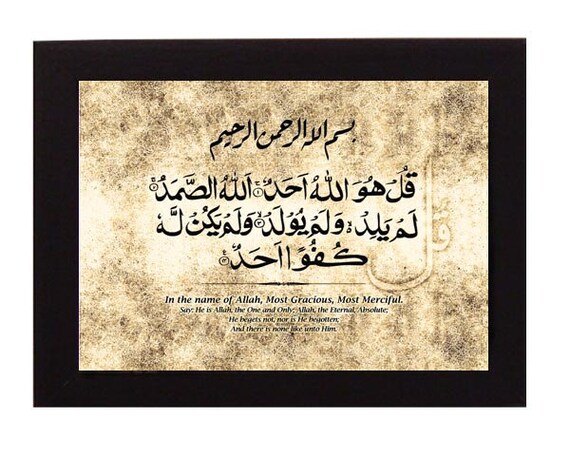 بسم الله الرحمن الرحيم
قُلْ هُوَ اللّٰهُ اَحَدٌ ۚ۝۱ اَللّٰهُ الصَّمَدُ ۚ۝۲
لَمْ يَلِدْ ۙ۬ وَلَمْ يُوْلَدْ ۙ۝۳ وَلَمْ يَكُنْ لَّهٗ
كُفُوًا اَحَدٌ ۠۝۴
قل
In the name of Allah, Most Gracious, Most Merciful.
Say: He is Allah, the One and Only; Allah, the Eternal, Absolute;
He begets not, nor is He begotten;
And there is none like unto Him.